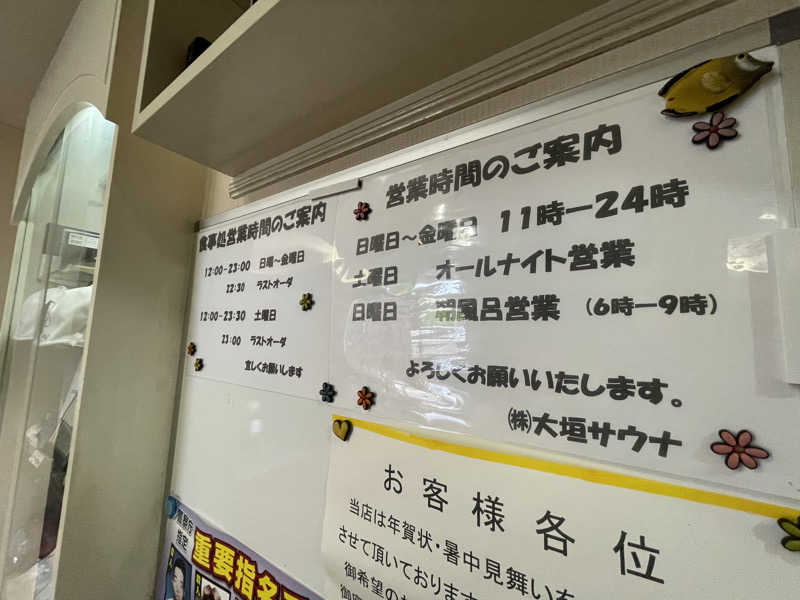 食事処営業時間のご案内
12:00-23:00 日曜~金曜日
22:30 ラストオーダ
12:00-23:30 土曜日
23:00 ラストオーダ
宜しくお願いします
営業時間のご案内
日曜日~金曜日 11時ー24時
土曜日 オールナイト営業
日曜日 朝風呂営業 (6時ー9時)
よろしくお願いいたします。
㈱大垣サウナ
お客様各位
当店は年賀状・暑中見舞いを
させて頂いております
御希望の
重要指名